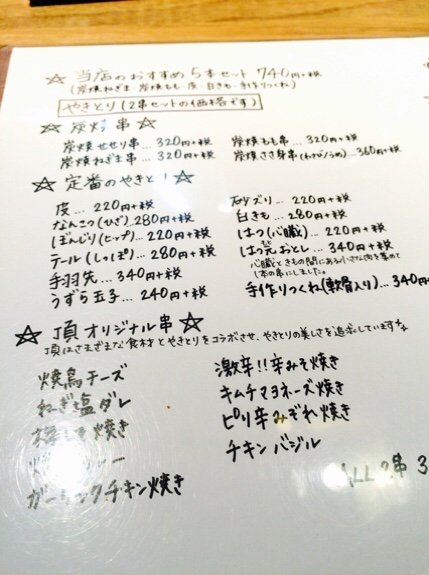 ☆ 当店のおすすめ 5本セット 740円+税
(炭焼ねぎま・炭焼もも・皮・白きも・手作りつくね)
やきとり(2串セットの価格です)
☆ 炭焼 串 ☆
炭焼せせり串... 320円+税
炭焼もも串... 320円+税
炭焼ねぎま串... 320円+税
炭焼ささ身串(わさび/うめ)... 360円+税
☆ 定番のやきとり! ☆
皮... 220円+税
砂ズリ... 220円+税
なんこつ(ひざ) 280円+税
白きも... 280円+税
ぼんじり(ヒップ)... 220円+税
はつ(心臓)... 220円+税
テール(しっぽ)... 280円+税
はつ元おとし... 340円+税
心臓ときもの間にある小さな肉を集めて
1本の串にしました。
手羽先... 340円+税
手作りつくね(軟骨入り)... 340円+
うずら玉子... 240円+税
☆ 頂 オリジナル串 ☆
頂はさまざまな食材とやきとりをコラボさせ、やきとりの美しさを追求しています
焼鳥チーズ
激辛!!辛みそ焼き
ねぎ塩ダレ
キムチマヨネーズ焼き
焼き
ピリ辛みぞれ焼き
チキンバジル
ガーリックチキン焼き
ALL 2串 3